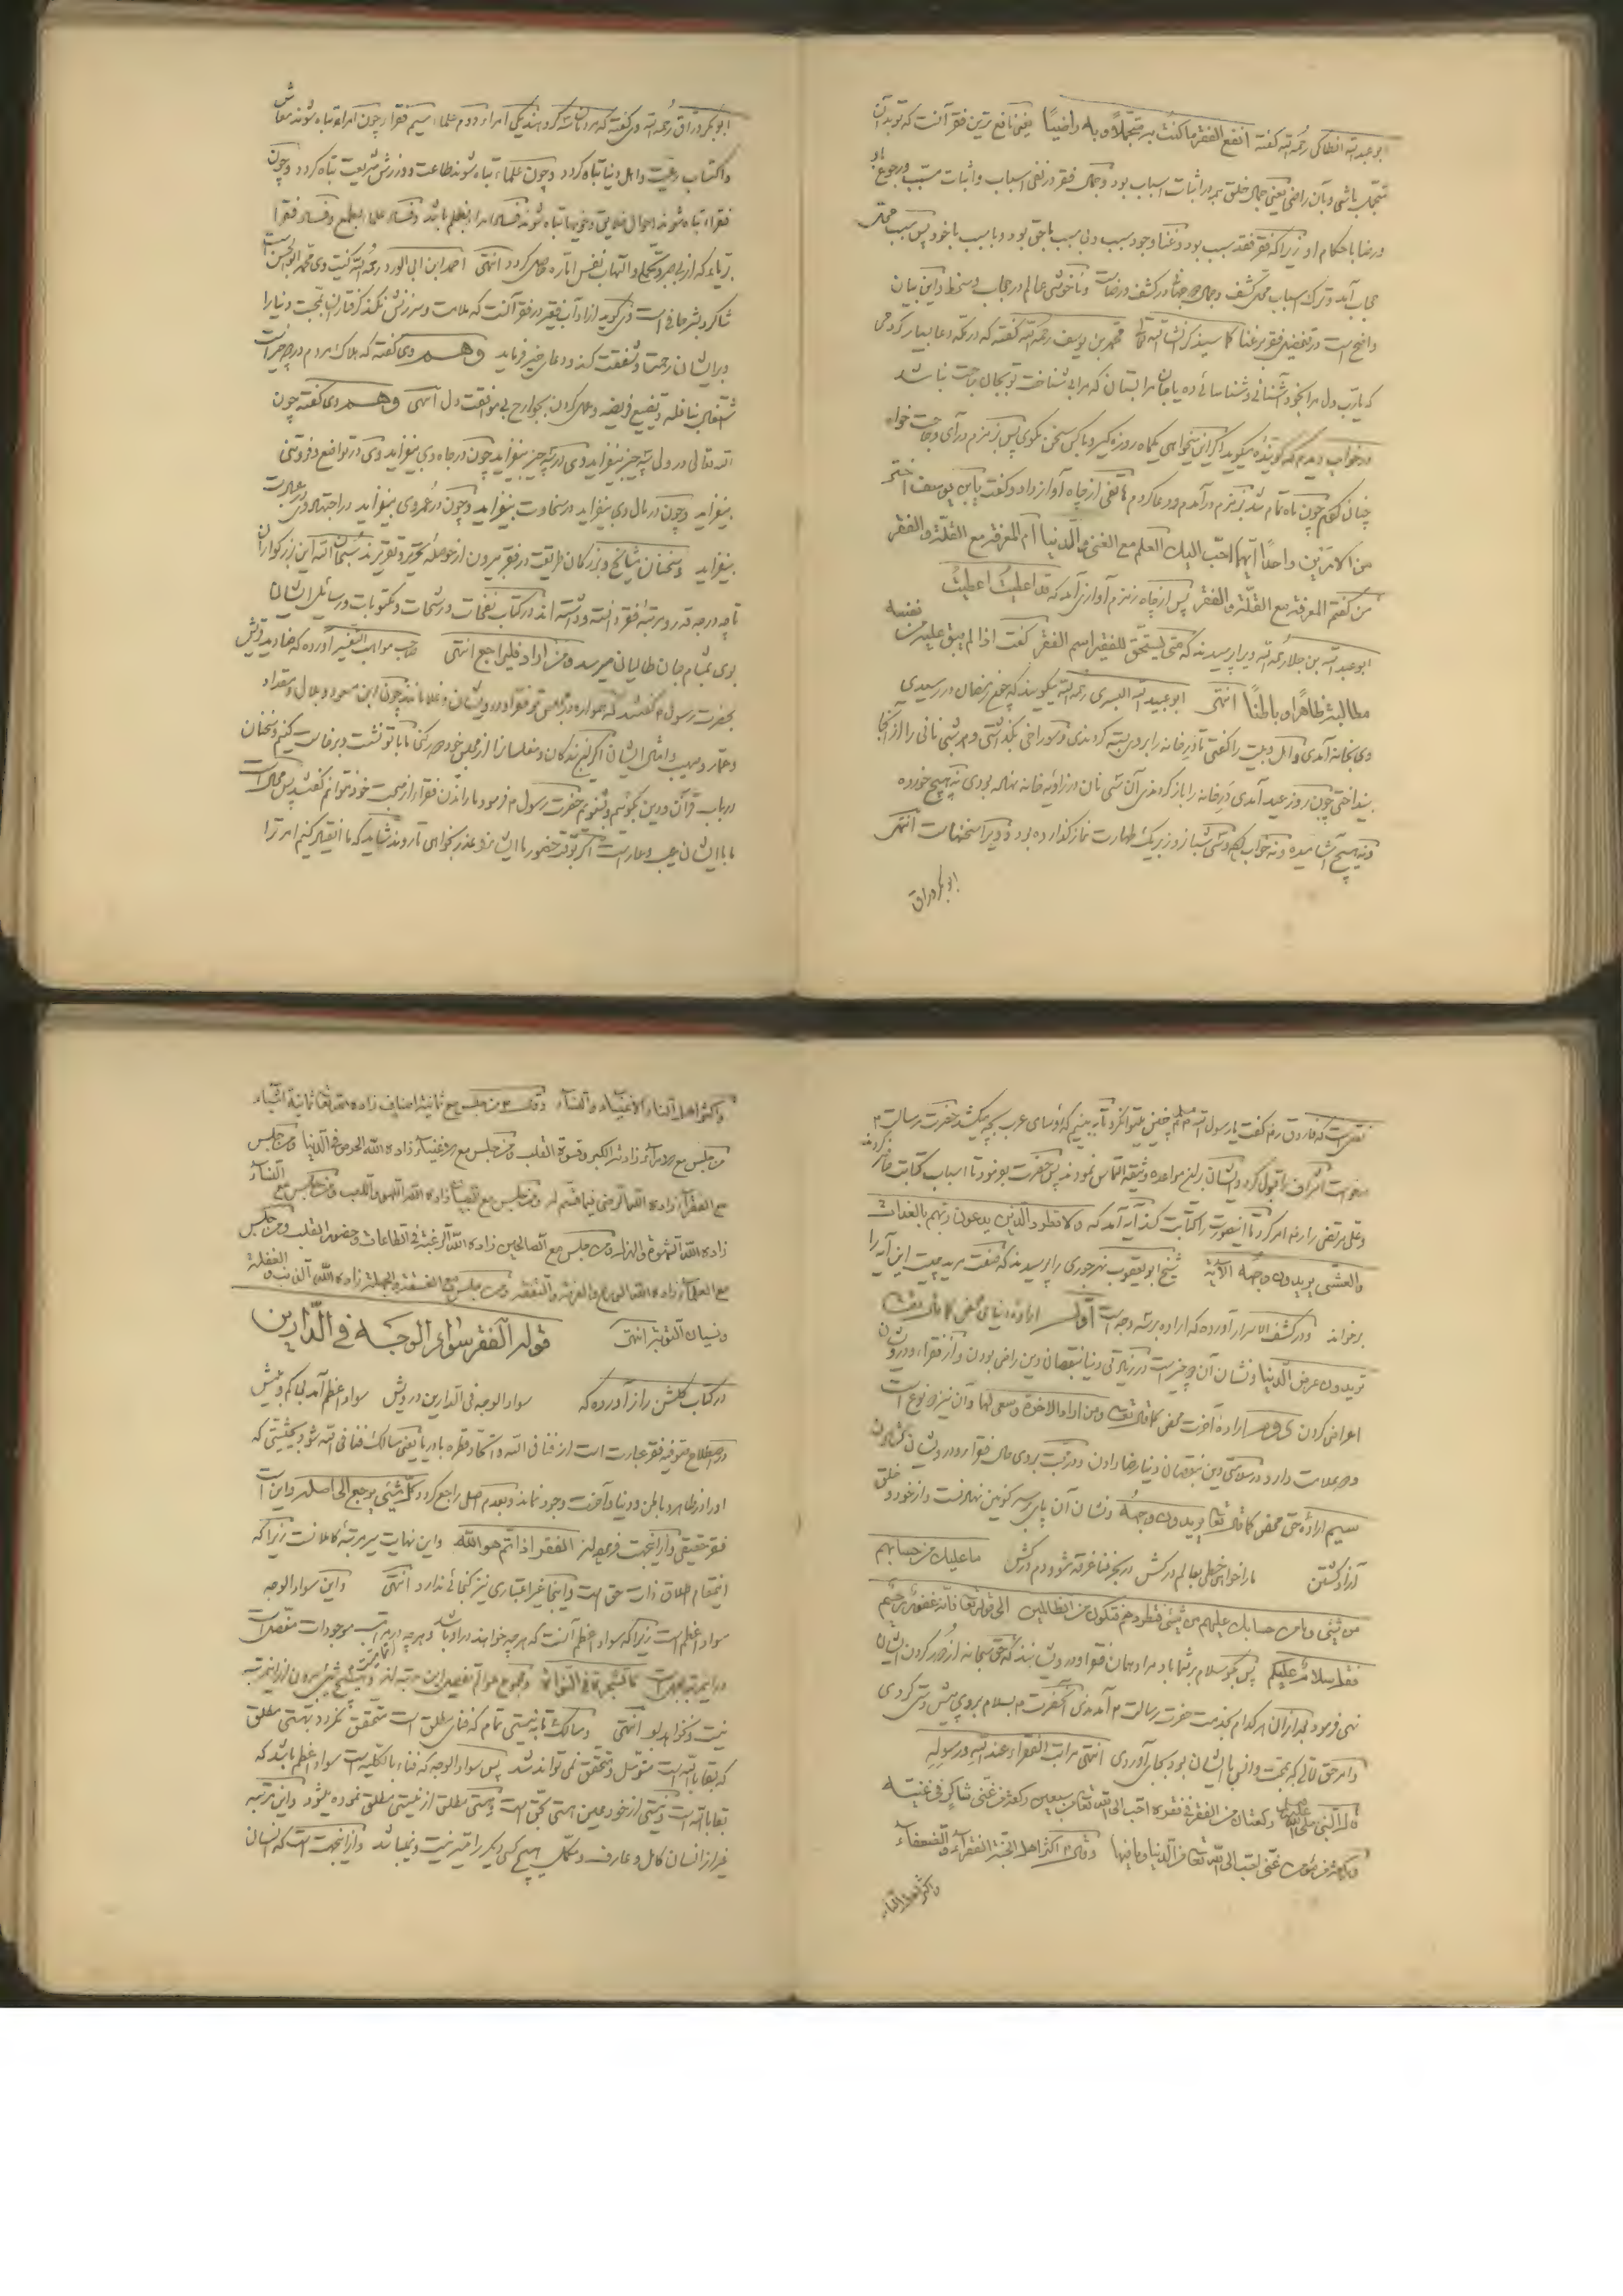 ابوعبدالله انطاکی رحمه الله گفته انفع الفقر ما کنت به متجملا و به راضیا یعنی نافع ترین فقر آنست که تو بدان
متجمل باشی و بدان راضی یعنی جمال خلق همه در اثبات اسباب بود و جمال فقر در نفی اسباب و اثبات مسبب و رجوع باو
و رضا باحکام او زیرا که فقر فقد سبب بود و غنا وجود سبب و بی سبب باحق بود و با سبب باخود پس سبب محل
حجاب آمد و ترک اسباب محل کشف و جمال دو جهان در کشف و رضاست و ناخوشی عالم در حجاب و سخط و این بیان
واضح است در تفضیل فقر بر غنا کما سیذکر انشاء الله تعالی محمد بن یوسف رحمه الله گفته که در مکه دعا بسیار کردمی
که یارب دل مرا بخود آشنائی و شناسائی ده یا جان مرا بستان که مرا بی شناخت تو بجان حاجت نباشد
در خواب دیدم که گوینده میگوید اگر این میخواهی یکماه روزه گیر و با کس سخن مگوی پس بزمزم درآی و حاجت خواه
چنان کردم چون ماه تمام شد بزمزم درآمدم و دعا کردم هاتفی از چاه آواز داد و گفت یا ابن یوسف اختر
من الامرین واحدا ایهما احب الیک العلم مع الغنی و الدنیا ام المعرفة مع القلة و الفقر
من گفتم المعرفة مع القلة و الفقر پس از چاه زمزم آوازی آمد که قد اعطیت اعطیت
ابوعبدالله بن جلا رحمه الله ویرا پرسیدند که متی یستحق للفقیر اسم الفقر گفت اذا لم یبق علیه من نفسه
مطالبة ظاهرا و باطنا انتهی ابوعبید البسری رحمه الله میگویند که چون رمضان در رسیدی
وی بخانه آمدی و اهل بیت را گفتی تا در خانه را بروی بسته کردندی و سوراخی بگذاشتی و هر شبی نانی را از آنجا
بینداختی چون روز عید آمدی در خانه را باز کردندی آن سی نان در زاویه خانه نهاده بودی نه هیچ خورده
و نه هیچ آشامیده و نه خواب کرده و سی شبانروز بر یک طهارت نماز گذارده بود و ویرا سخنهاست انتهی
ابوبکر وراق
ابوبکر وراق رحمه الله وی گفته که مردمان سه گروهند یکی امرا و دوم علما سیم فقرا چون امرا تباه شوند معاش
واکتساب رعیت و اهل دنیا تباه گردد و چون علما تباه شوند طاعت و ورزش شریعت تباه گردد و چون
فقرا تباه شوند احوال خلایق و خویها تباه شوند فساد امرا بظلم باشد و فساد علما بطمع و فساد فقرا
بریا که از بی صبری و تحمل و التهاب نفس اماره حاصل گردد انتهی احمد ابن ابی الورد رحمه الله کنیت وی محمد ابوالحسن است
شاگرد بشر حافی است وی گوید از آداب فقیر در فقر آنست که ملامت و سرزنش نکند گرفتاران محبت دنیا را
و بر ایشان رحمت و شفقت کند و دعای خیر فرماید وهم وی گفته که هلاک مردم در دو چیز است
اشتغال بنافله و تضییع فریضه و عمل کردن بجوارح بی موافقت دل انتهی وهم وی گفته چون
الله تعالی در ولی سه چیز بیفزاید وی در سه چیز بیفزاید چون در جاه وی بیفزاید وی در تواضع و فروتنی
بیفزاید و چون در مال وی بیفزاید در سخاوت بیفزاید و چون در عمر وی بیفزاید در اجتهاد و عبادت
بیفزاید و سخنان مشایخ و بزرگان طریقت در فقر بیرون از حوصله تحریر و تقریرند سبحان الله این بزرگواران
تا چه درجه قدر و مرتبه فقر دانسته و داشته اند در کتاب نفحات و رشحات و مکتوبات و رسائل ایشان
بوی بمشام جان طالبان میرسد و من اراد فلیراجع انتهی صاحب مواهب التفسیر آورده که صنادید قریش
بحضرت رسول م گفتند که همواره در مجلس تو فقرا و درویشان و غلامانند چون ابن مسعود و بلال و مقداد
و عمار و صهیب و امثال ایشان اگر این بندگان و مفلسان را از مجلس خود دور کنی ما با تو نشست و برخاست کنیم و سخنان
در باب قرآن و دین بگوئیم و بشنویم حضرت رسول م فرمود ما راندن فقرا را از صحبت خود نتوانم گفتند پس مجالست
ما با ایشان عیب و عار است اگر بوقت حضور ما ایشان را عذر بخواهی تا روند شاید که ما انقیاد کنیم امر ترا
نقلست که فاروق رض گفت یا رسول الله صلعم چنین میتوان کرد تا ببینیم که رؤسای عرب بچه میکشد حضرت رسالت م
درخواست اشراف را قبول کرد و ایشان برین مواعده وثیقه التماس نمودند پس حضرت بفرمود تا اسباب کتابت حاضر کردند
و علی مرتضی را رض امر کرد تا این صورت را کتابت کند آیه آمد که ولا تطرد الذین یدعون ربهم بالغداة
والعشی یریدون وجهه الآیة شیخ ابو یعقوب نهرجوری را پرسیدند که صفت مرید چیست این آیه را
برخواند و در کشف الاسرار آورده که اراده بر سه وجه است اول اراده دنیای محض کما قال تعالی
تریدون عرض الدنیا و نشان آن دو چیز است در زیادتی دنیا بنقصان دین راضی بودن و از فقرا و درویشان
اعراض کردن دوم اراده آخرت محض کما قال تعالی ومن اراد الآخرة وسعی لها و آن نیز دو نوع است
سیم اراده حق محض کما قال تعالی یریدون وجهه و نشان آن پای بر سر کونین نهادنست و از خود و خلق
آزاد گشتن ما را خواهی خطی بعالم درکش در بحر فنا غرقه شو و دم درکش ما علیک من حسابهم
من شیء وما من حسابک علیهم من شیء فتطردهم فتکون من الظالمین الی قوله تعالی فانه غفور رحیم
فقل سلام علیکم پس بگو سلام بر شما باد مراد همان فقرا و درویشانند که حق سبحانه از دور کردن ایشان
نهی فرمود بعد از آن هر کدام بخدمت حضرت رسالت م آمدندی آنحضرت م بسلام بر وی پیش دستی کردی
و امر حق تعالی که بمحبت و انس با ایشان بود بجای آوردی انتهی مراتب الفقراء عند الله ورسوله
قال النبی صلی الله علیه وسلم رکعتان من الفقیر فی فقره احب الی الله تعالی من سبعین رکعة من غنی شاکر فی غنیته
احب الی الله تعالی من الدنیا وما فیها وقال م اکثر اهل الجنة الفقراء والضعفاء
واکثر اهل النار
واکثر اهل النار الاغنیاء والنساء وقال م من جلس مع ثمانیة اصناف زاده الله تعالی ثمانیة اشیاء
من جلس مع الامراء زاده الله الکبر وقسوة القلب ومن جلس مع الاغنیاء زاده الله الحرص فی الدنیا ومن جلس
مع الفقراء زاده الله الرضی فیما قسم له ومن جلس مع الصبیان زاده الله اللهو واللعب ومن جلس مع النساء
زاده الله الشهوة ومن جلس مع الصالحین زاده الله الرغبة فی الطاعات وحضور القلب ومن جلس
مع العلماء زاده الله الورع والعزة ومن جلس مع الفسقة والجهلة زاده الله الذنب والغفلة
ونسیان التوبة انتهی قوله الفقر سواد الوجه فی الدارین
در کتاب گلشن راز آورده که سواد الوجه فی الدارین درویش سواد اعظم آمد بی کم و بیش
در اصطلاح صوفیه فقر عبارت است از فنا فی الله و اتحاد قطره با دریا یعنی سالک فنا فی الله شود بحیثیتی که
او را در ظاهر و باطن و دنیا و آخرت وجود نماند و بعدم اصلی راجع گردد کل شیء یرجع الی اصله و این است
فقر حقیقی و از اینجهت فرموده اند الفقر اذا تم هو الله و این نهایت سیر مرتبه کاملانست زیرا که
اینمقام اطلاق ذات حق است و اینجا غیر اعتباری نیز گنجائی ندارد انتهی و این سواد الوجه
سواد اعظم است زیرا که سواد اعظم آنست که هر چه خواهند در او باشد و هر چه در مراتب موجودات مفصل است
در این مرتبه مجمل است کالشجرة فی النواة و مجموع عوالم تفصیل این مرتبه اند و هیچ شیء بیرون از اینمرتبه
نیست و نخواهد بود انتهی و سالک تا به نیستی تمام که فنای مطلق است متحقق نگردد بهستی مطلق
که بقا بالله است متوسل و متحقق نمی تواند شد پس سواد الوجه که فناء بالکلیه است سواد اعظم باشد که
بقا بالله است و نیستی از خود عین هستی بحق است و هستی مطلق از نیستی مطلق نموده میشود و این مرتبه
غیر از انسان کامل و عارف و مکمل هیچ کس دیگر را میسر نیست و نمیباشد و از اینجهت است که انسان